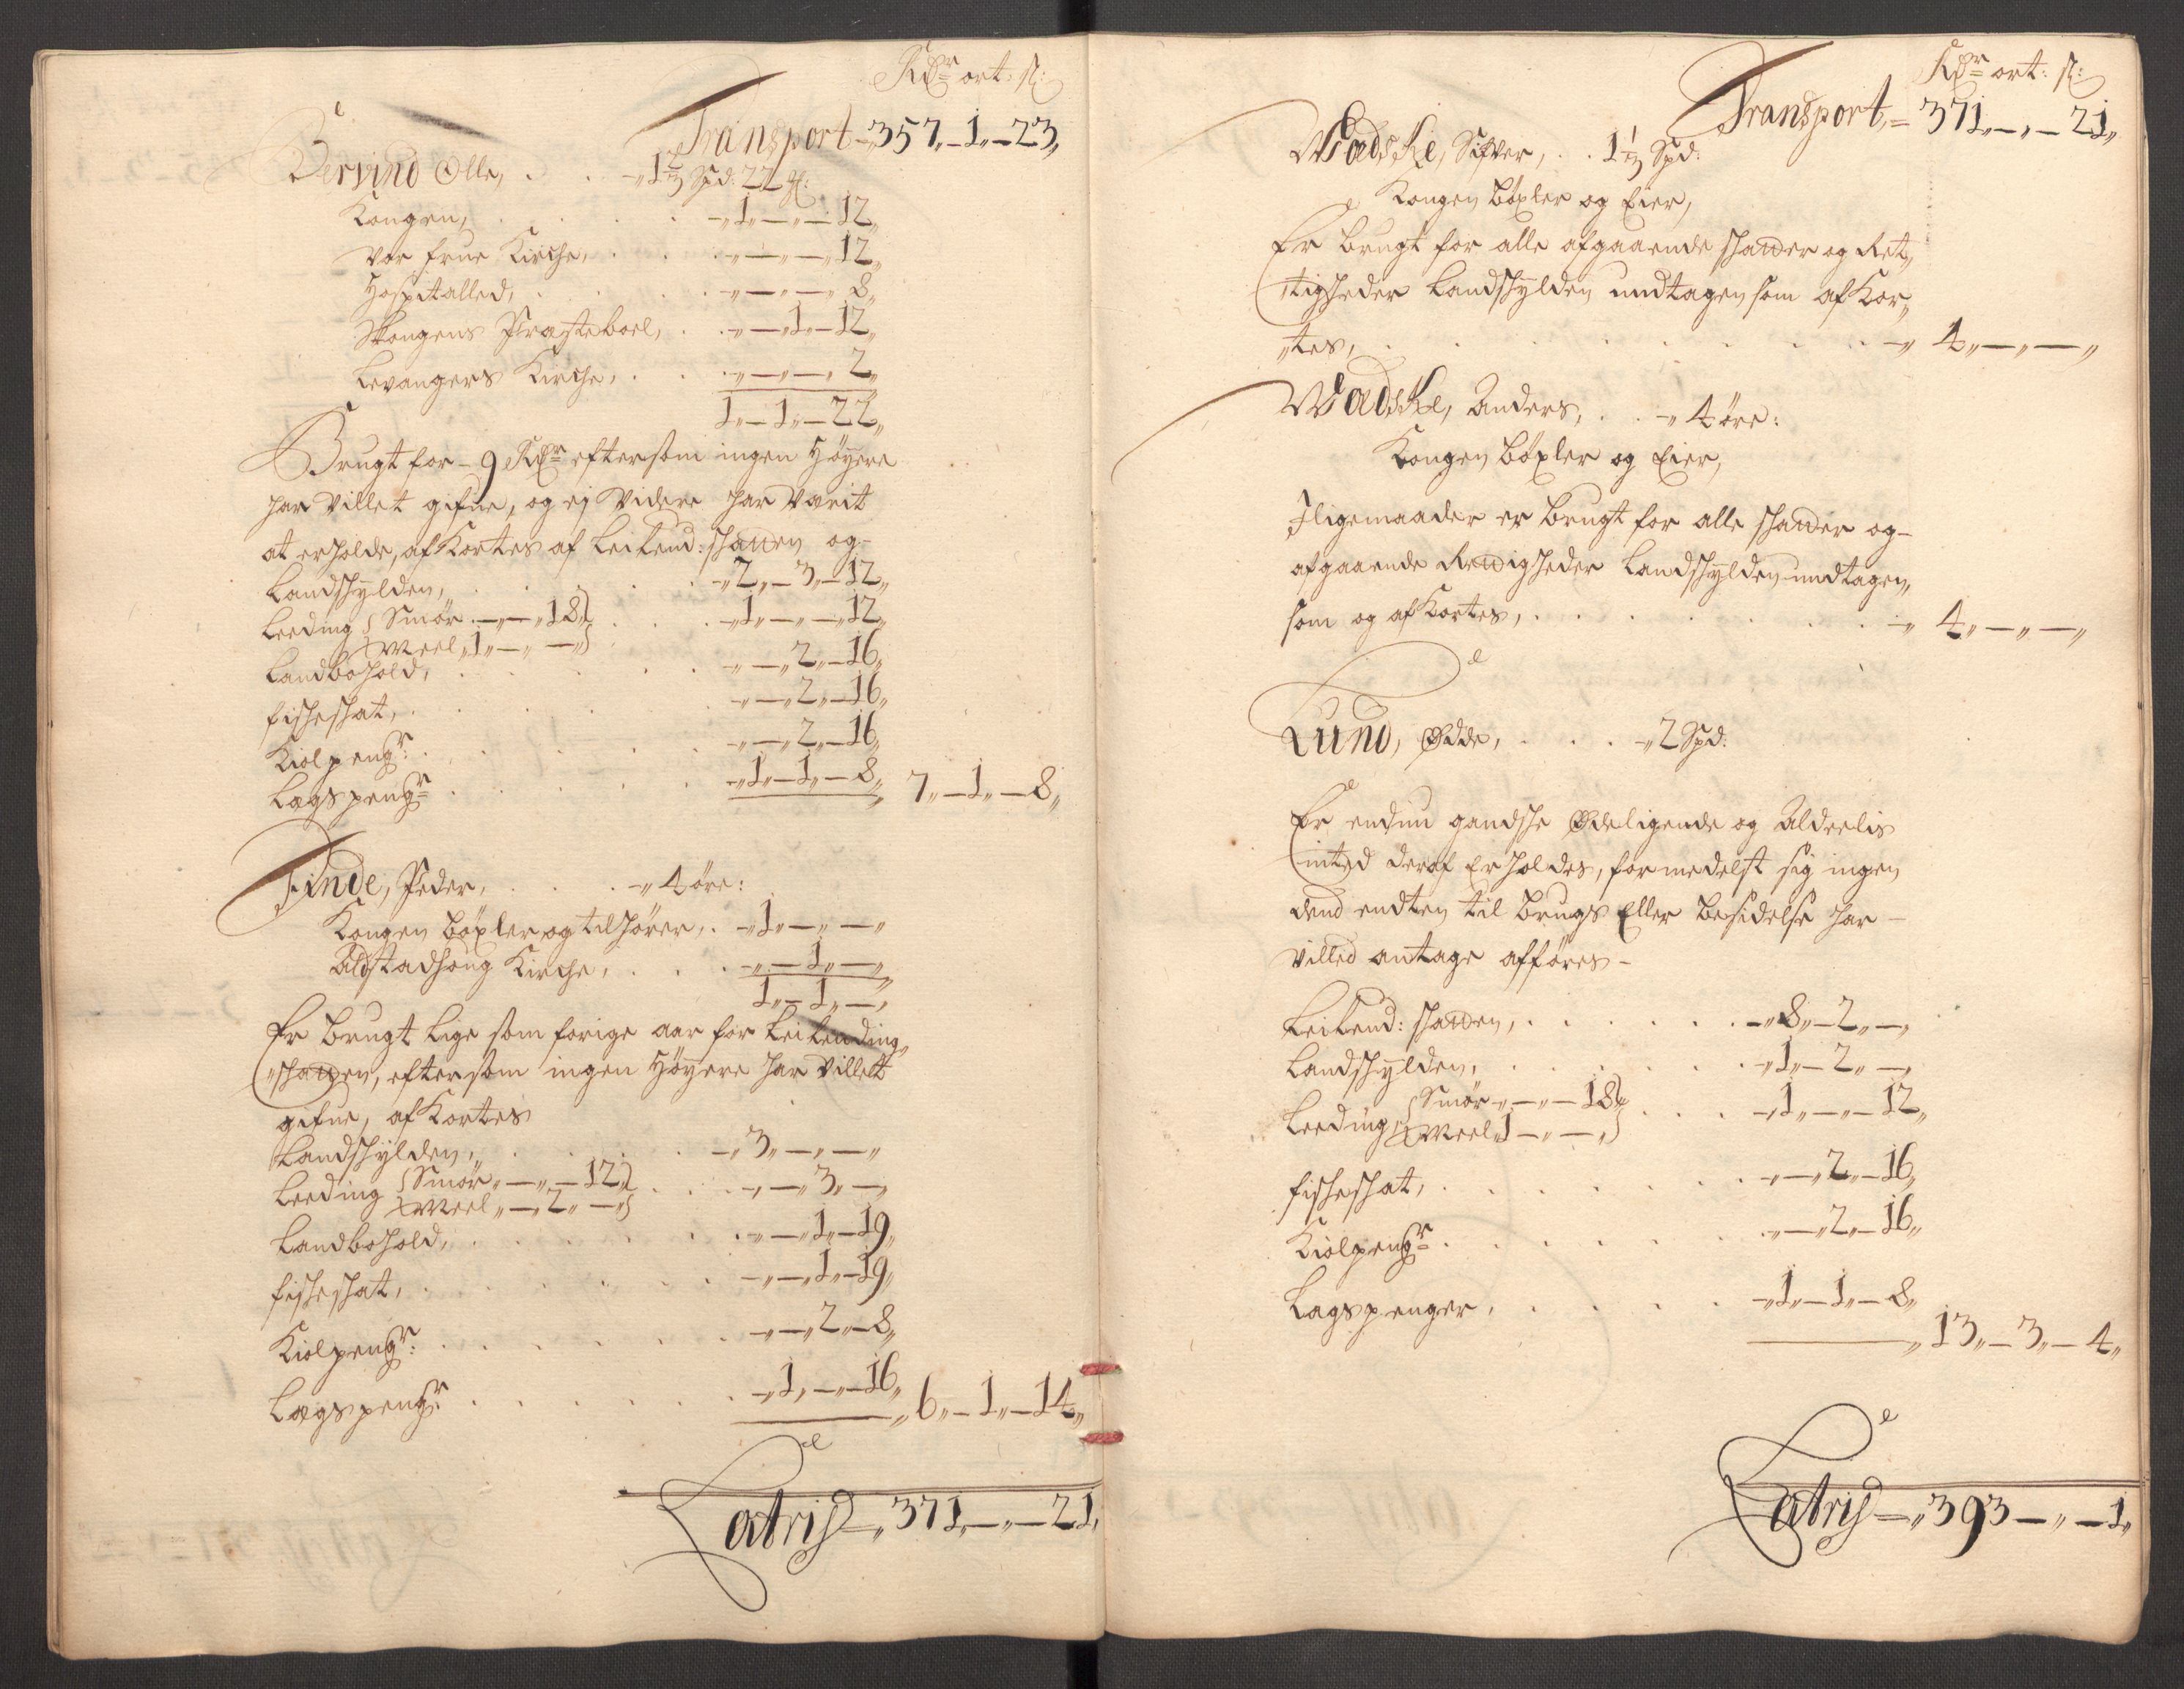 Rdr ort: s:
Transport - 357,,-1,,-23,,
Bervind Olle, . . -,, 1 2/3 Spd: 22 #:
Kongen, . . . -,,1,,-,,-12,,
Vor frue Kirche, . . . -,,-,,-,,12,,
Hospitalled, . . . -,,-,,-,,8,,
Skongens Præsteboel, . . -,,-,,1,,-12,,
Levangers Kirche, . . . -,,-,,-,,2,,
1,,-1,,-22,,
Brugt for - 9 Rdr eftersom ingen Høyere
har villet gifue, og ej Videre har Varit
at erholde, af Kortes af Leilend: schatten og-
Landschylden, . . . -,,2,,-3,,-12,,
Leeding { Smør -,,-,,18 } . . . -,,1,,-,,-12,,
Meel ,,1,,-,,-,,
Landbohold, . . . -,,-,,2,,-16,,
fischeschat, . . . -,,-,,2,,-16,,
Kiolpengr: . . . -,,-,,2,,-16,,
Lagspengr . . . -,,1,,-1,,-8,, 7,,-1,,-8,,
Finde, Peder, . . . -,, 4 øre:
Kongen bøxler og tilhører, . -,,1,,-,,-,,
Alstadhoug Kirche, . . . -,,-,,1,,-,,
1,,-1,,-,,
Er brugt lige som forige aar for Leilending,,
,,schatten, eftersom ingen Høyere har Villelt
gifue, af Kortes
Landschylden, . . . -,,3,,-,,-,,
Leeding { Smør ,,-,,-12,, } . . . -,,-,,3,,-,,
Meel ,,-,,2,,-,,
Landbohold, . . . -,,-,,1,,-19,,
fischeschat, . . . -,,-,,1,,-19,,
Kiolpengr: . . . -,,-,,2,,-8,,
Lagspengr . . . -,,1,,-,,-16,, 6,,-1,,-14,,
Latris =,, 371,,-,,-21,,
Rdr ort: s:
Transport,= 371,,-,,-21,,
Wadske, Sifver, . . 1 1/3 Spd:
Kongen bøxler og Eier,
Er brugt for alle afgaaende schatter og Ret,,
,,tigheder Landschylden undtagen som af Kor,,
,,tes, . . . -,, 4,,-,,-,,
Wadske, Anders, . . -,, 4 øre:
Kongen bøxler og Eier,
Iligemaader er brugt for alle schatter og-
afgaaende Rettigheder Landschylden undtagen,
som og af Kortes, . . . -,, 4,,-,,-,,
Lund, Øde, . . . -,, 2 Spd:
Er endnu gandsche Ødeligende og Alderlis
inted deraf Erholdes, formedelst sig ingen
dend endten til brugs Eller besidelse har -
villed antage afføres -
Leilend: schatten, . . . -,,8,,-2,,-,,
Landschylden, . . . -,,1,,-2,,-,,
Leeding { Smør -,,-,,-18,, } . . . -,,1,,-,,-12,,
Meel ,,1-,,-,,
fischeschat, . . . -,,-,,2,,-16,,
Kiolpengr . . . -,,-,,2,,-16,,
Lagspenger, . . . -,,1,,-1,,-8,,
,, 13,,-3,,-4,,
Latris =,, 393-,,-1,,